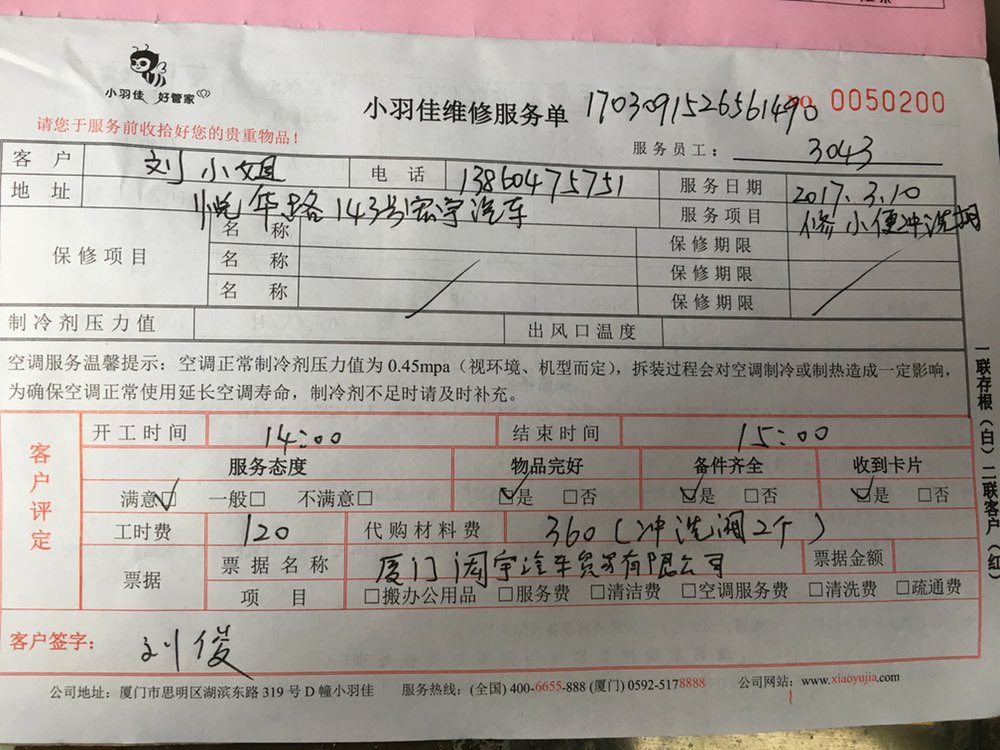 小羽佳 好管家
小羽佳维修服务单 1703091526561490 NO. 0050200
请您于服务前收拾好您的贵重物品！
服务员工： 3043
客户 刘小姐 电话 13860475751 服务日期 2017.3.10
地址 悦华路143号宏宇汽车 服务项目 修小便冲洗阀
保修项目 名称 保修期限
名称 保修期限
名称 保修期限
制冷剂压力值 出风口温度
空调服务温馨提示：空调正常制冷剂压力值为 0.45mpa（视环境、机型而定），拆装过程会对空调制冷或制热造成一定影响，
为确保空调正常使用延长空调寿命，制冷剂不足时请及时补充。
客户评定
开工时间 14:00 结束时间 15:00
服务态度 物品完好 备件齐全 收到卡片
满意☑ 一般□ 不满意□ ☑是 □否 ☑是 □否 ☑是 □否
工时费 120 代购材料费 360（冲洗阀2个）
票据 票据名称 厦门闳宇汽车贸易有限公司 票据金额
项目 □搬办公用品 □服务费 □清洁费 □空调服务费 □清洗费 □疏通费
客户签字： 刘俊
公司地址：厦门市思明区湖滨东路 319 号 D 幢小羽佳 服务热线：(全国) 400-6655-888 (厦门) 0592-5178888 公司网站：www.xiaoyujia.com
一联存根（白）二联客户（红）